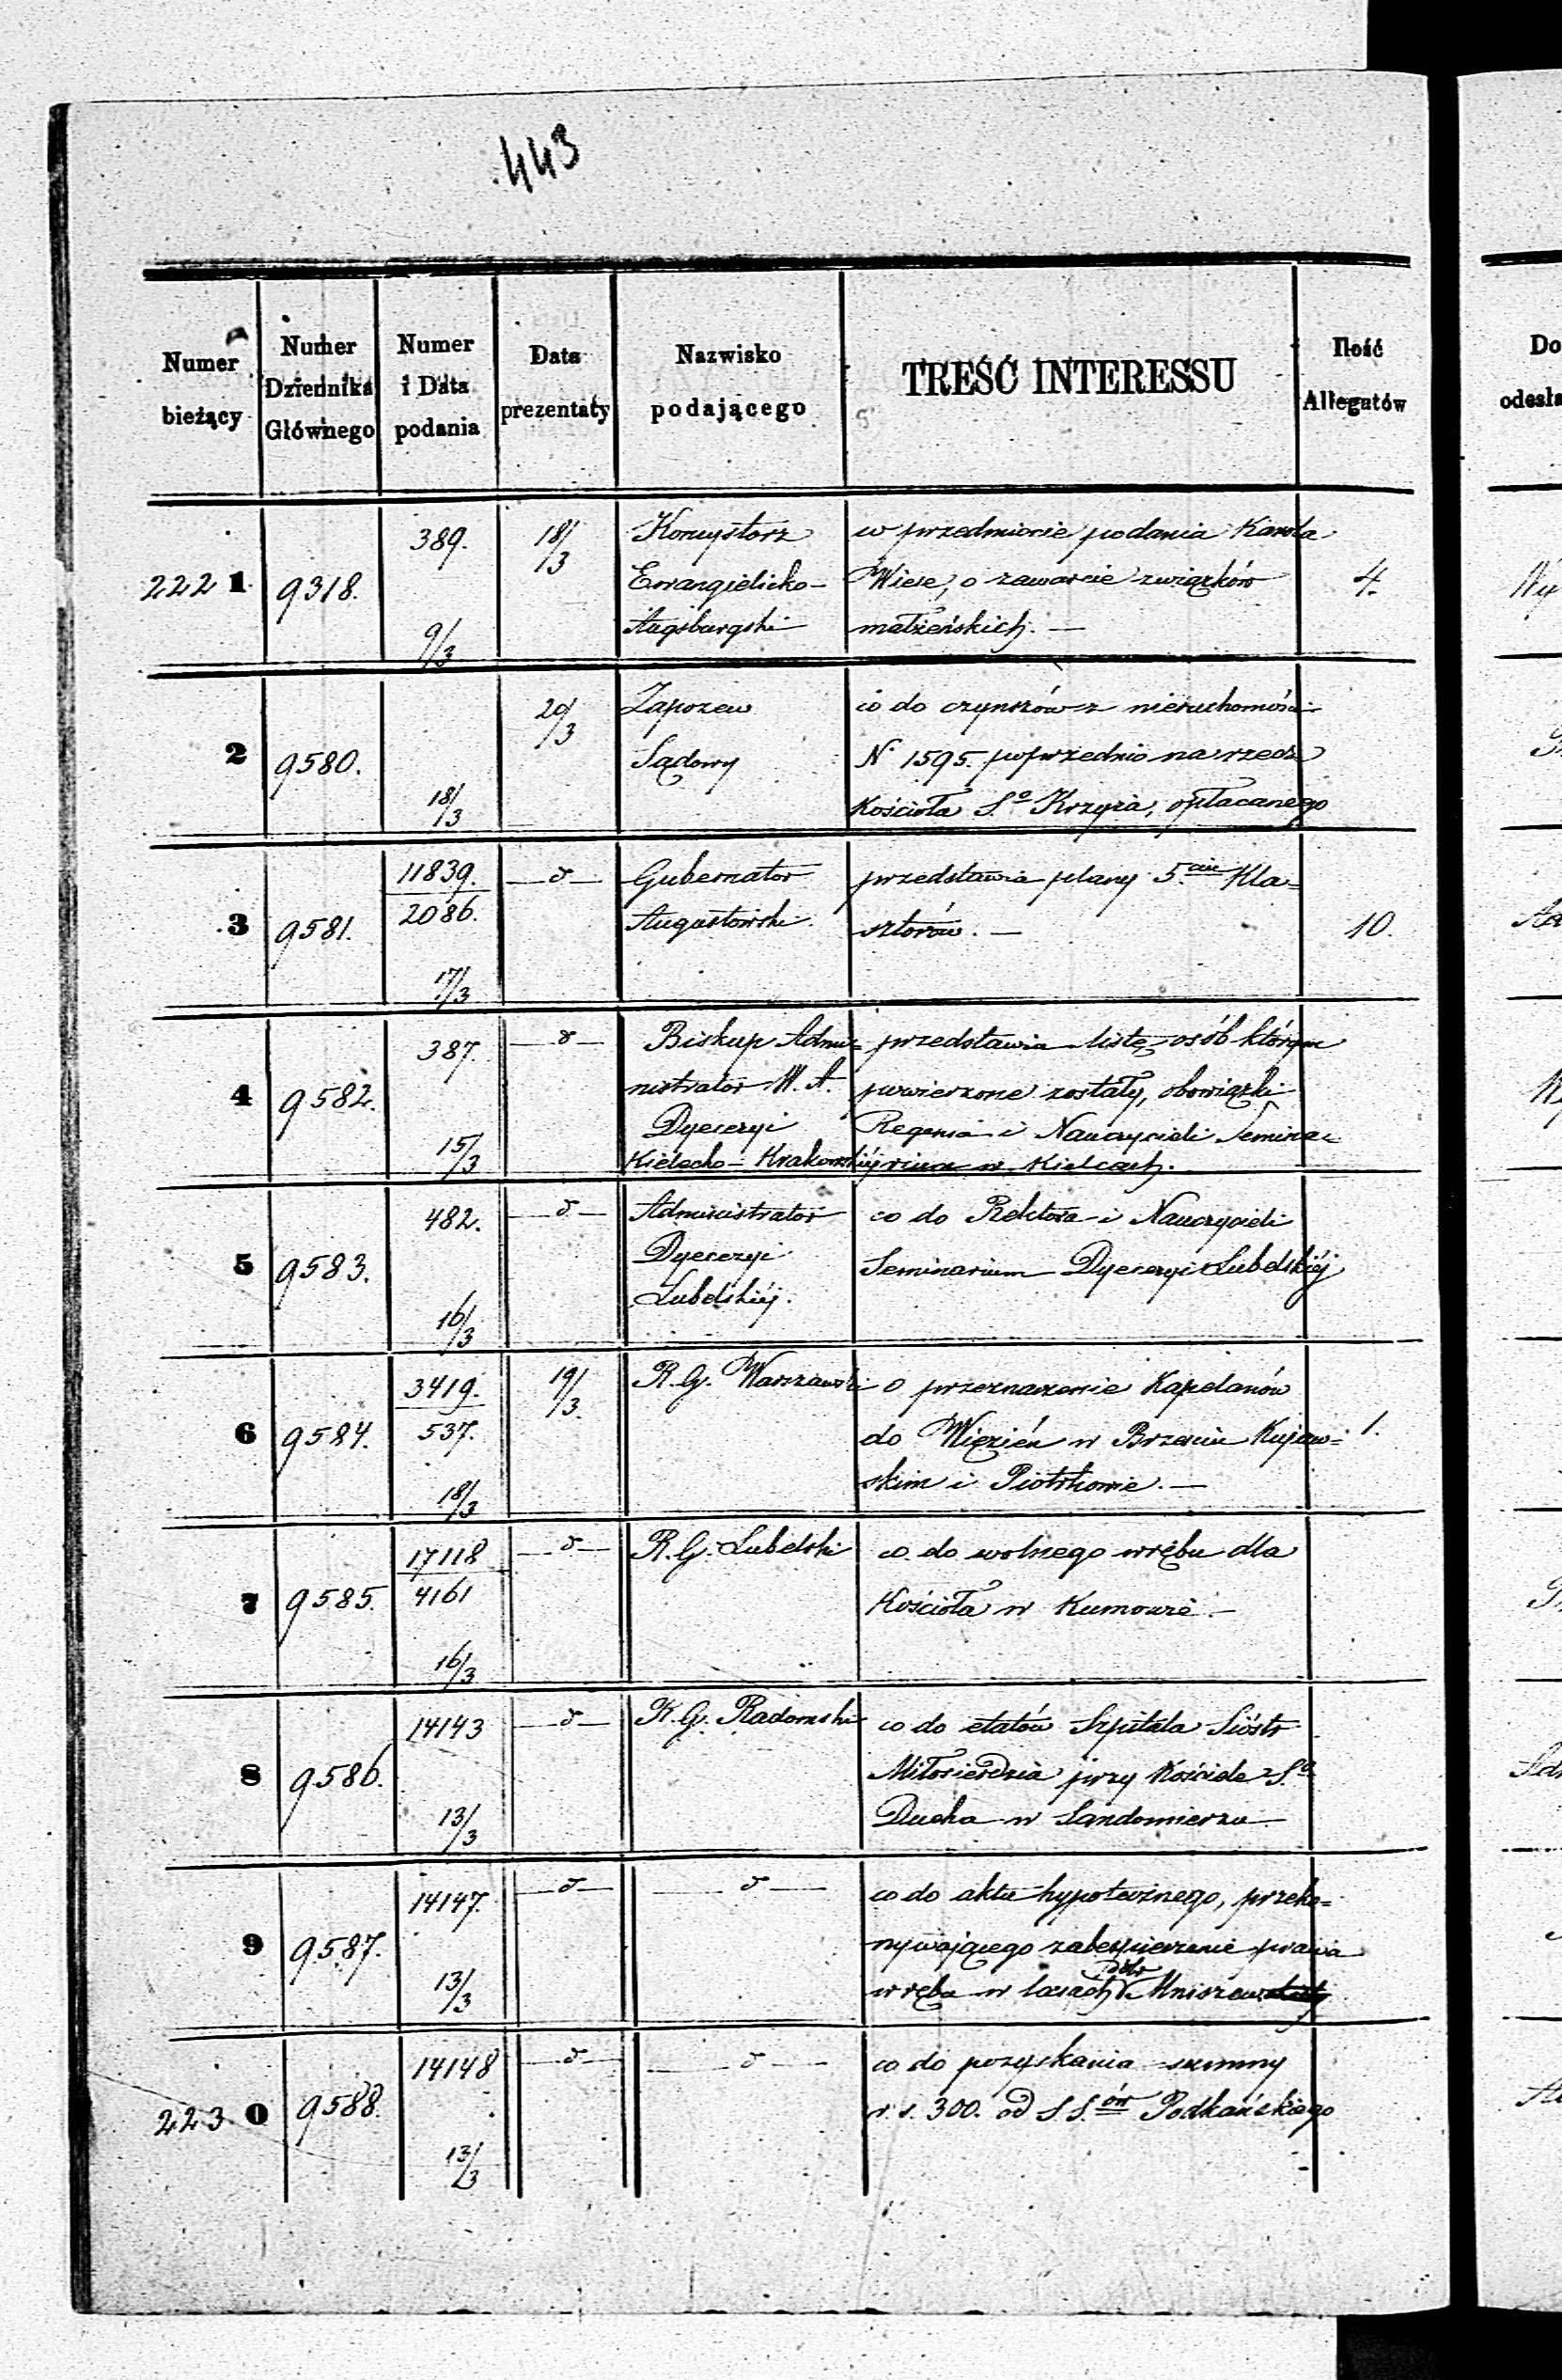 443
Numer bieżący | Numer Dziennika Głównego | Numer i Data podania | Data prezentaty | Nazwisko podającego | TREŚĆ INTERESSU | Ilość Allegatów
Do
odesła
389. 18/3 Konsystorz w przedmiocie podania Karola
2221 9318. Ewangielicko- Wiese, o zawarcie związków 4.
9/3 Augsburgski małżeńskich. —
20/3 Zapozew co do czynszów z nieruchomości
2 9580. Sądowy N 1595. poprzednio na rzecz
18/3 Kościoła S.o Krzyża, opłacanego
11839. — d — Gubernator przedstawia plany 5.ciu Kla=
3 9581. 2086. Augustowski. sztorów. — 10.
17/3
387. — d — Biskup Admi= przedstawia listę osób którym
4 9582. nistrator W. A. powierzone zostały, obowiązki
15/3 Dyecezyi Regensa i Nauczycieli Semina=
Kielecko-Krakowskiéj rium w Kielcach.
482. — d — Administrator co do Rektora i Nauczycieli
5 9583. Dyecezyi Seminarium Dyecezyi Lubelskiéj
16/3 Lubelskiéj.
3419. 19/3. R. G. Warszawski o przeznaczenie Kapelanów
6 9584. 537. do Więzień w Brześciu Kujaw= 1.
18/3 skim i Piotrkowie. —
17118 — d — R. G. Lubelski co do wolnego wrębu dla
7 9585. 4161 Kościoła w
16/3
14143 — d — R. G. Radomski co do etatów Szpitala Sióstr
8 9586. Miłosierdzia przy Kościele S.o
13/3 Ducha w Sandomierzu —
14147. — d — — d — co do aktu hypotecznego, przeko=
9 9587. nywającego zabespieczenie prawa
13/3 wrębu w lasach Dóbr Mniszew
14148 — d — — d — co do pozyskania summy
2230 9588. r. s. 300. od S S.ów Podkańskiego
13/3